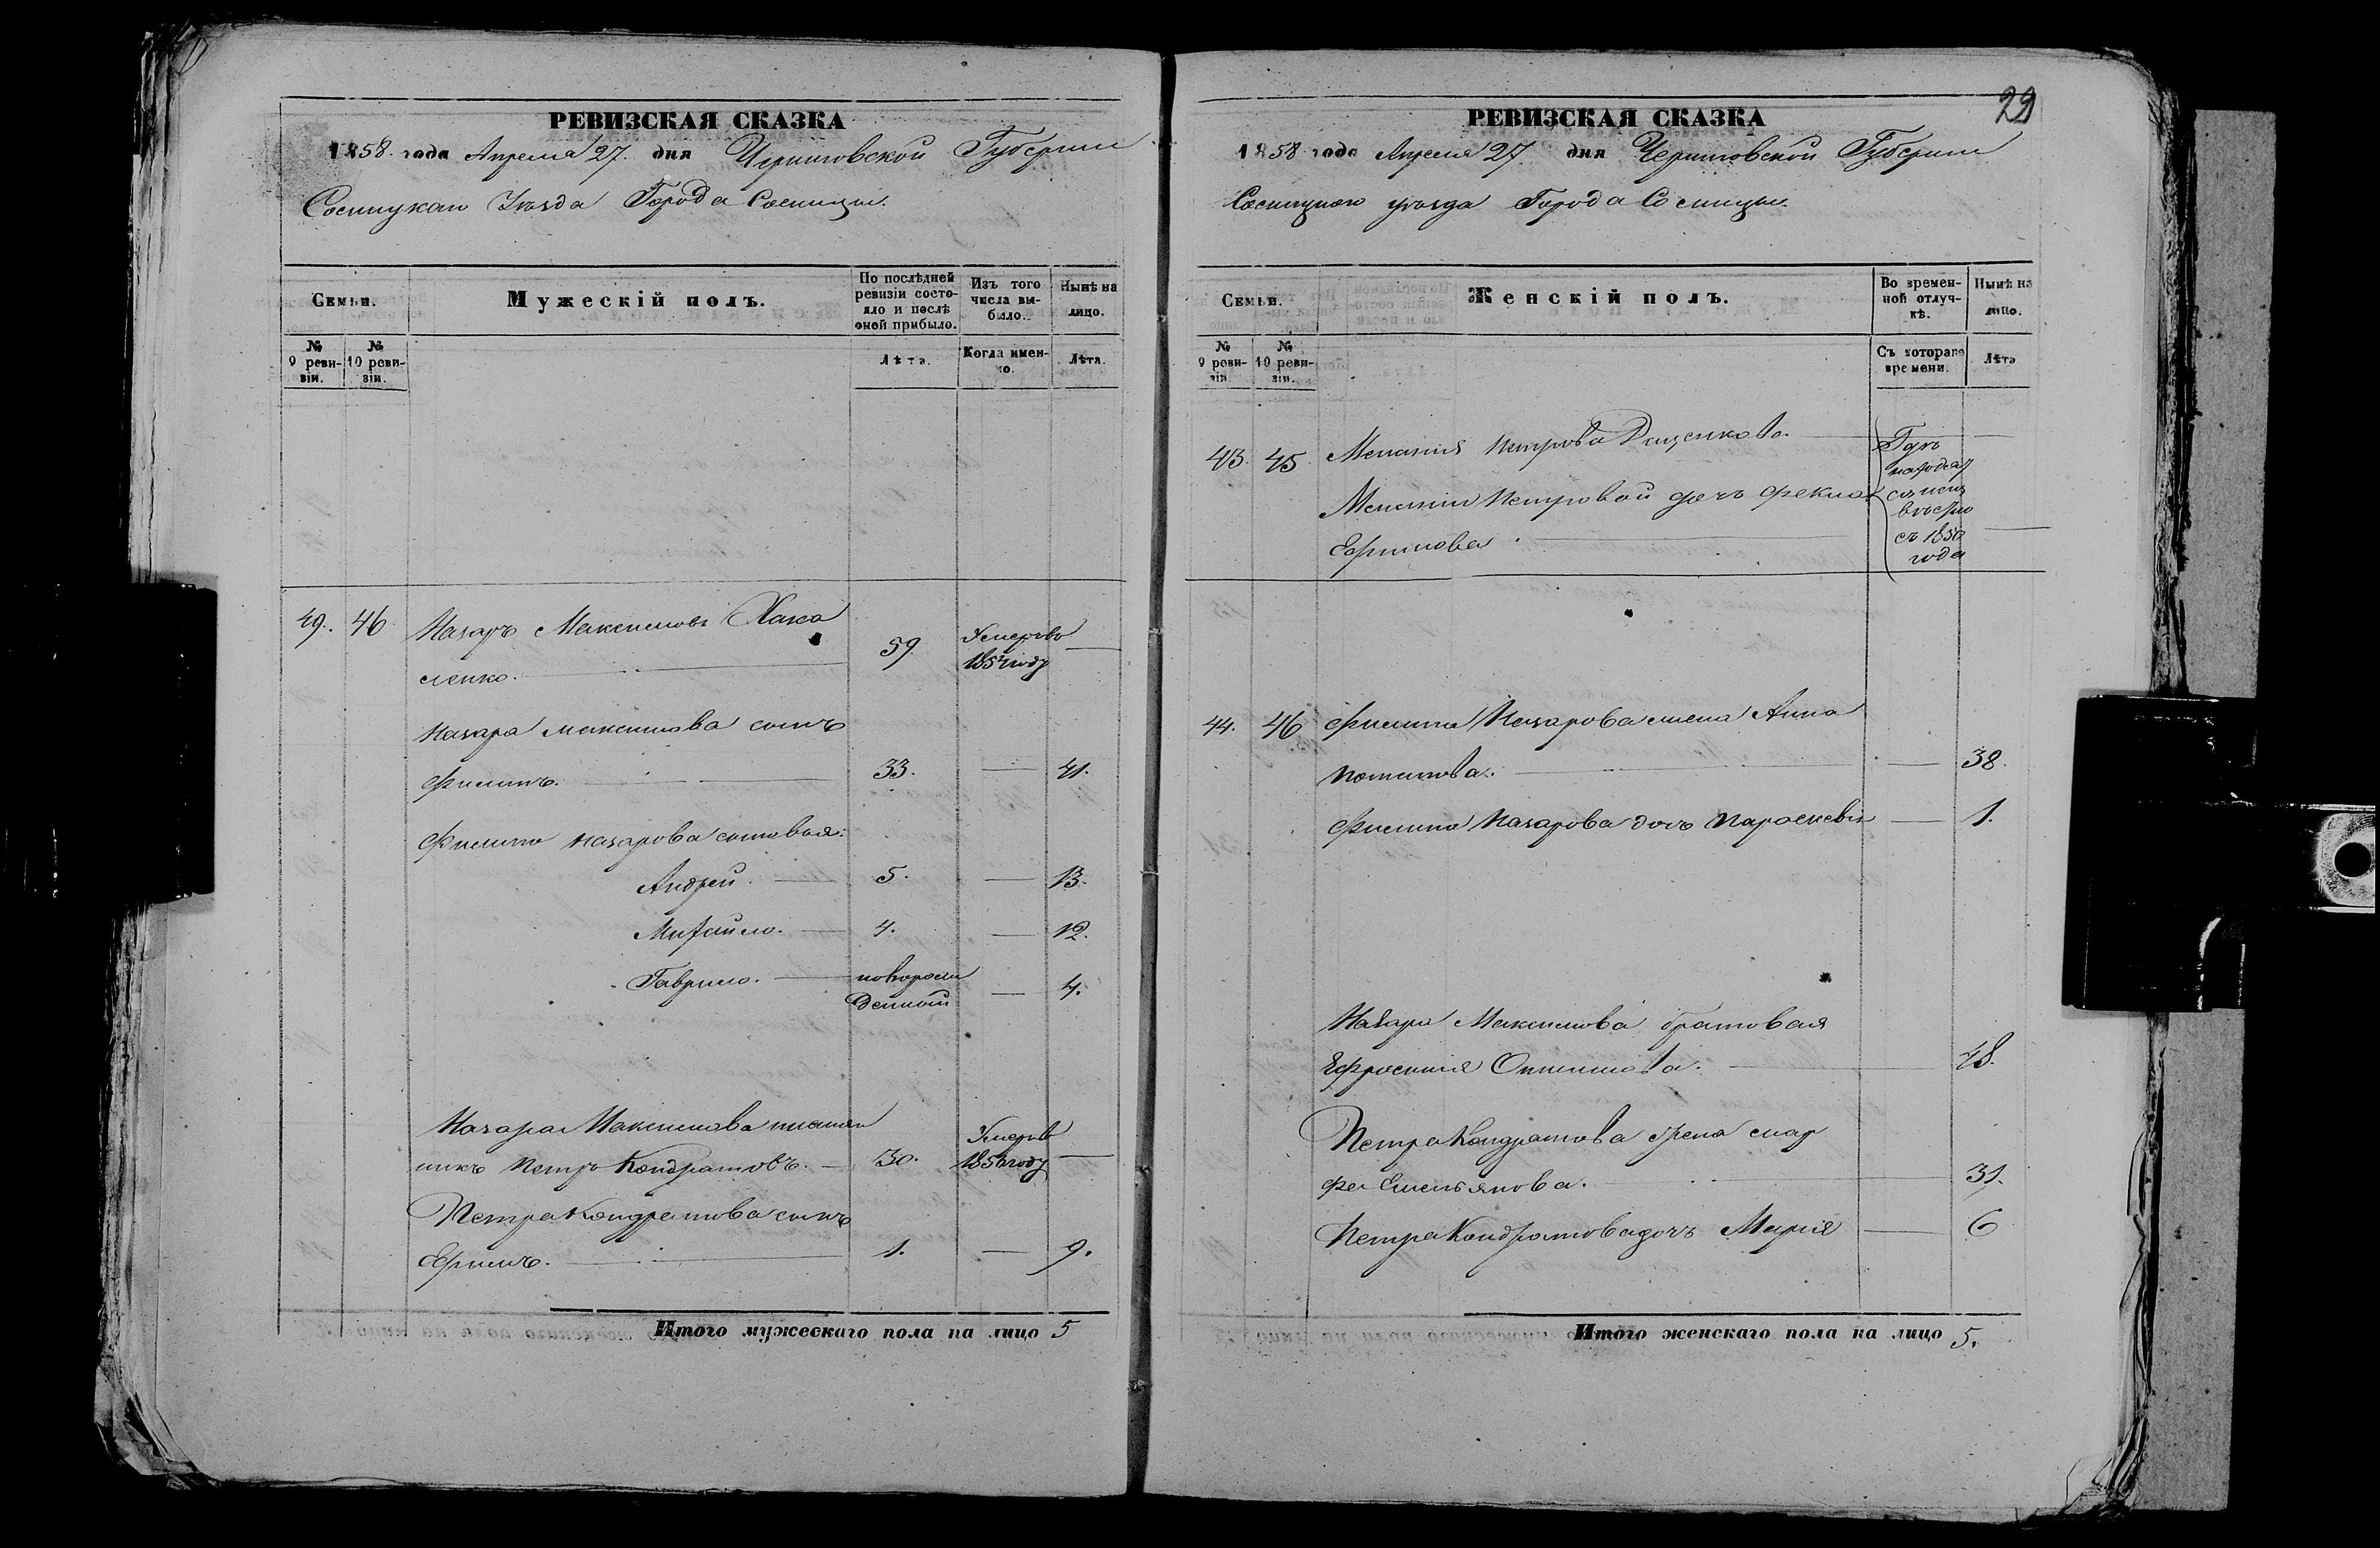 РЕВИЗСКАЯ СКАЗКА
1858 года Апреля 27. дня Черниговской Губернии
Сосницкаго Уезда Города Сосницы.
Семьи.
Мужескій полъ.
По послѣдней ревизіи состояло и послѣ оной прибыло.
Изъ того числа выбыло.
Нынѣ на лицо.
№ 9 ревизіи.
№ 10 ревизіи.
Лѣта.
Когда именно.
Лѣта.
49. 46 Назаръ Максимовъ
сленко. 59. Умеръ в
185 году —
Назара Максимова сынъ
Филипъ. 33. — 41.
Филипа Назарова сыновья:
Андрей. 5. — 13.
Михайло. 4. — 12.
Гаврило. новорож
денный — 4.
Назара Максимова племян
никъ Петръ Кондратовъ. — 30. Умеръ в
1856 году —
Петра Кондратова сынъ
Ефимъ. 1. — 9.
Итого мужескаго пола на лицо 5
29
РЕВИЗСКАЯ СКАЗКА
1858 года Апреля 27 дня Черниговской Губернии
Сосницкого уезда Города Сосницы.
Семьи.
Женскій полъ.
Во временной отлучкѣ.
Нынѣ на лицо.
№ 9 ревизіи.
№ 10 ревизіи.
Съ котораго времени.
Лѣта
43. 45. Мелания Петрова —
Мелании Петровой дочъ Фекла
Ефимова. —
находят
ся
съ 1850
года
44. 46 Филипа Назарова жена Анна
— 38.
Филипа Назарова дочъ Параскевия — 1.
Назара Максимова братовая
Ефросиния 48.
Петра Кондратова жена Мар
фа Емельянова. 31.
Петра Кондратова дочъ Мария — 6
Итого женскаго пола на лицо 5.